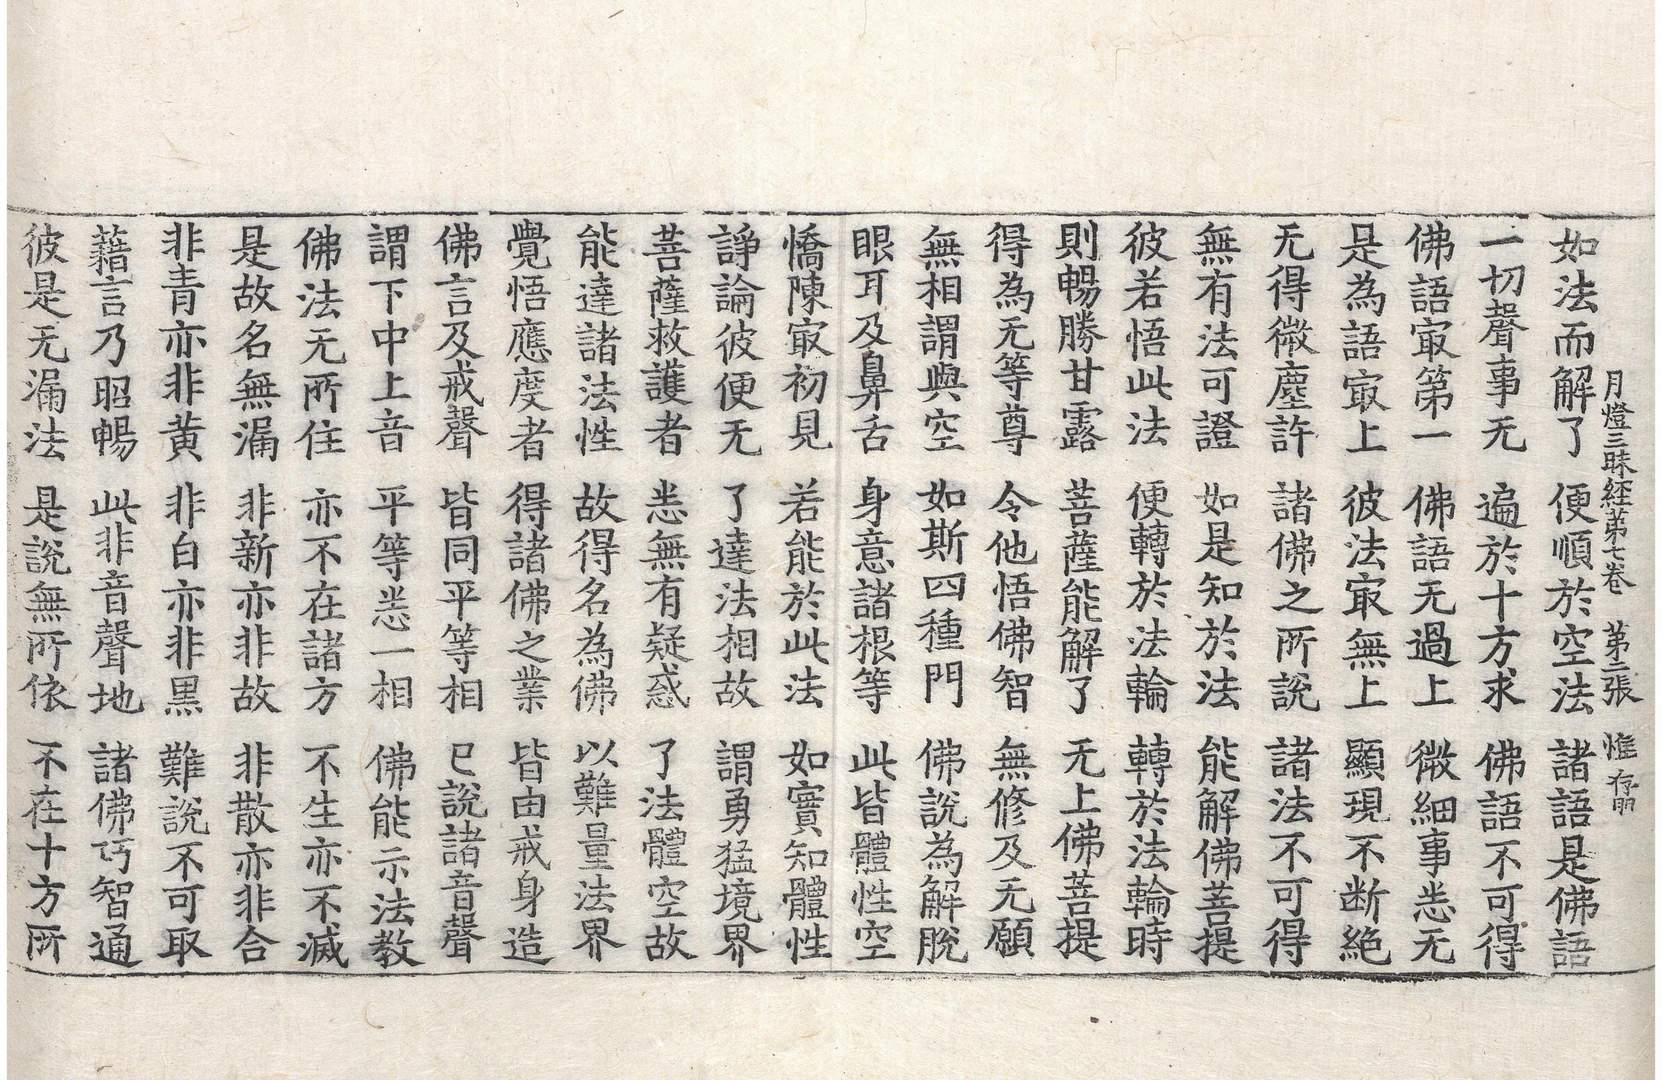 如法而解了 便順於空法 諸語是佛語
月燈三昧經第七卷 第二張 惟
一切聲事无 遍於十方求 佛語不可得
佛語寂第一 佛語无過上 微細事悉无
是為語寂上 彼法寂無上 顯現不断絕
无得微塵許 諸佛之所說 諸法不可得
無有法可證 如是知於法 能解佛菩提
彼若悟此法 便轉於法輪 轉於法輪時
則暢勝甘露 菩薩能解了 无上佛菩提
得為无等尊 令他悟佛智 無修及无願
無相謂與空 如斯四種門 佛說為解脫
眼耳及鼻舌 身意諸根等 此皆體性空
憍陳寂初見 若能於此法 如實知體性
諍論彼便无 了達法相故 謂勇猛境界
菩薩救護者 悉無有疑惑 了法體空故
能達諸法性 故得名為佛 以難量法界
覺悟應度者 得諸佛之業 皆由戒身造
佛言及戒聲 皆同平等相 已說諸音聲
謂下中上音 平等悉一相 佛能示法教
佛法无所住 亦不在諸方 不生亦不滅
是故名無漏 非新亦非故 非散亦非合
非青亦非黄 非白亦非黑 難說不可取
藉言乃昭暢 此非音聲地 諸佛巧智通
彼是无漏法 是說無所依 不在十方所